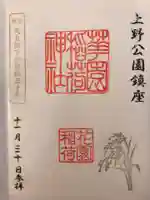 上野公園鎮座
華園
稲荷
神社
花園
稲荷
十一月三十日参拝